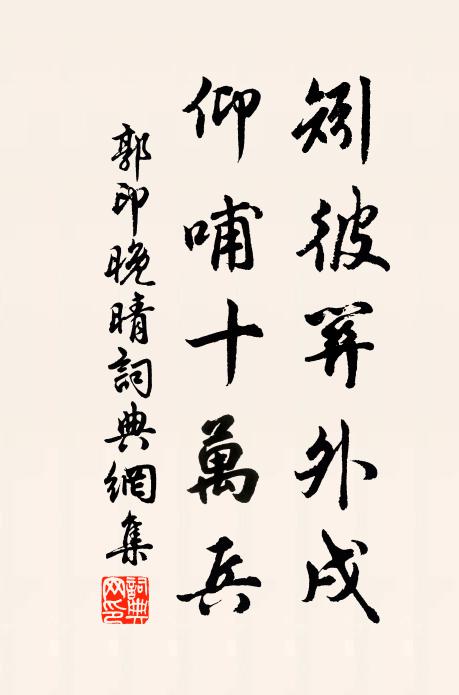 矧彼關外戍
仰哺十萬兵
郭印晚晴詞典網集
詞典网印